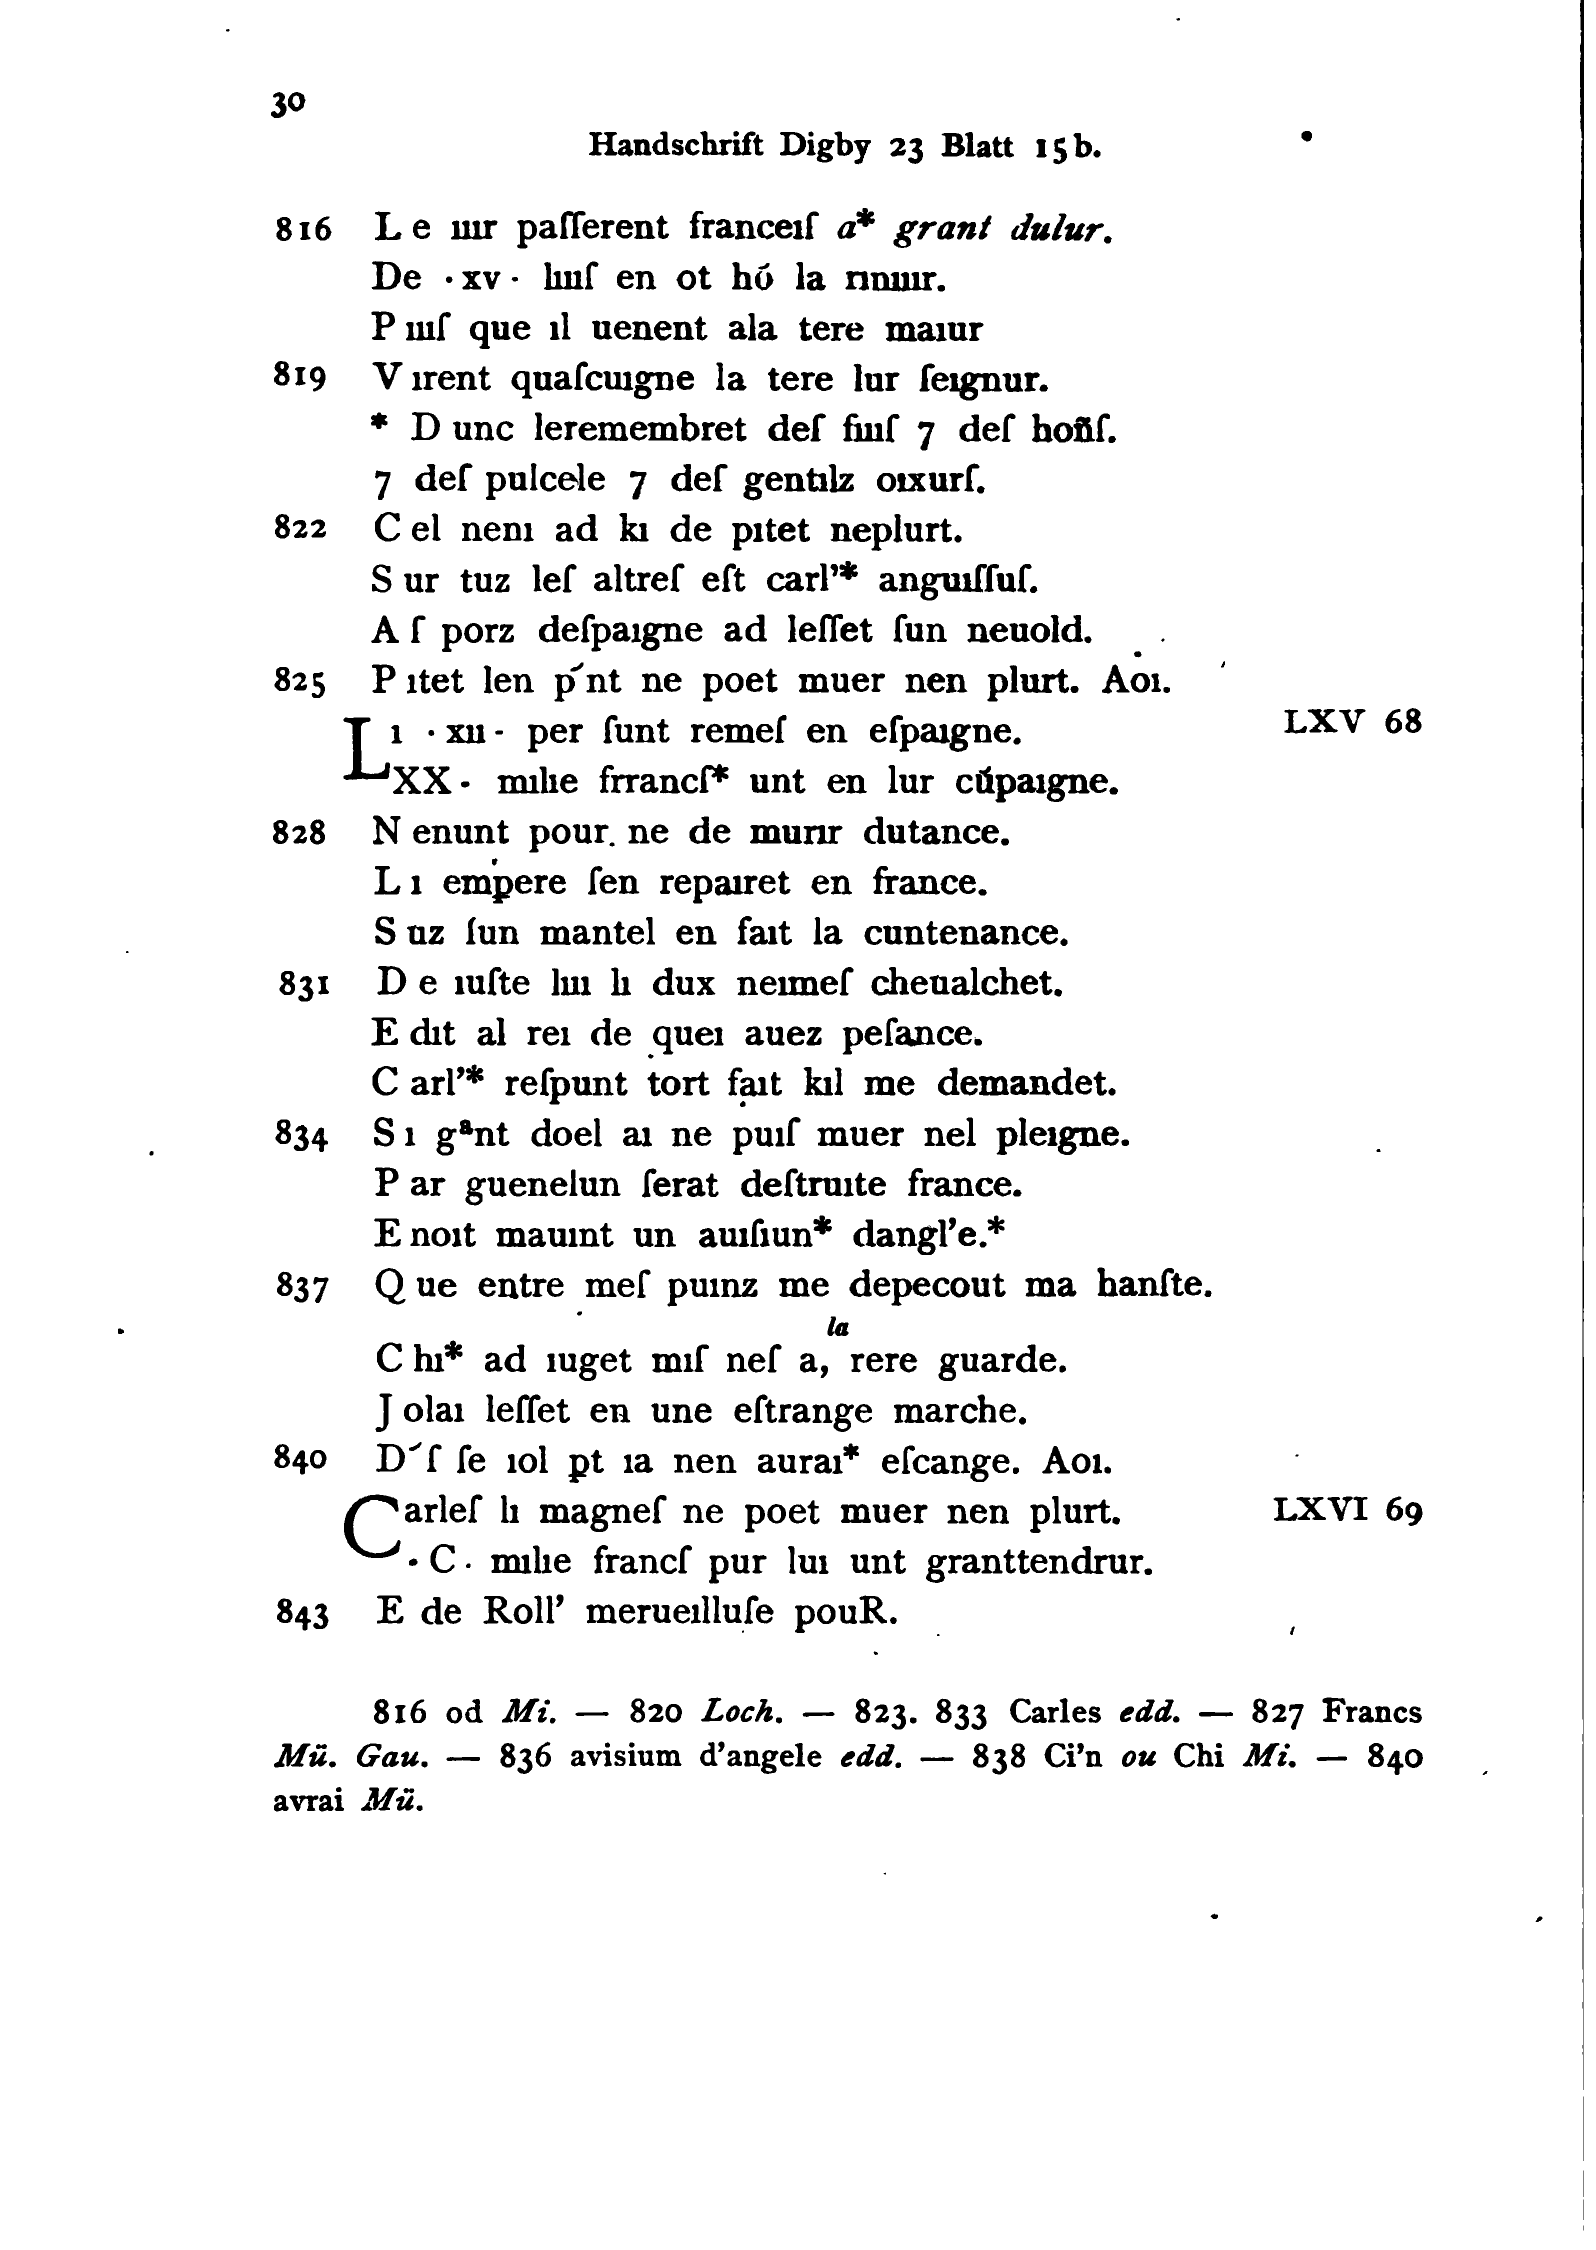 30
Handschrift Digby 23 Blatt 15b.
816 L e ıuır paſſerent franceıſ a* grant dulur.
De ·xv· lıuſ en ot hó la rımur.
P uıſ que ıl uenent ala tere maıur
819 V ırent quaſcuıgne la tere lur ſeıgnur.
* D unc leremembret deſ fıuſ 7 deſ hoñſ.
7 deſ pulcele 7 deſ gentılz oıxurſ.
822 C el nenı ad kı de pıtet neplurt.
S ur tuz leſ altreſ eſt carl'* anguıſſuſ.
A ſ porz deſpaıgne ad leſſet ſun neuold.
825 P ıtet len p´nt ne poet muer nen plurt. Aoı.
Lı ·xıı· per ſunt remeſ en eſpaıgne. LXV 68
XX· mılıe frrancſ* unt en lur cúpaıgne.
828 N enunt pour. ne de murır dutance.
L ı emp̣ere ſen repaıret en france.
S uz ſun mantel en faıt la cuntenance.
831 D e ıuſte luı lı dux neımeſ cheualchet.
E dıt al reı de queı auez peſance.
C arl'* reſpunt tort faıt kıl me demandet.
834 S ı gᵃnt doel aı ne puıſ muer nel pleıgne.
P ar guenelun ſerat deſtruıte france.
E noıt mauınt un auıſıun* dangl'e.*
837 Q ue entre meſ puınz me depecout ma hanſte.
la
C hı* ad ıuget mıſ neſ a, rere guarde.
J olaı leſſet en une eſtrange marche.
840 D´ſ ſe ıol pt ıa nen auraı* eſcange. Aoı.
Carleſ lı magneſ ne poet muer nen plurt. LXVI 69
·C· mılıe francſ pur luı unt granttendrur.
843 E de Roll' merueılluſe pouR.
816 od Mi. — 820 Loch. — 823. 833 Carles edd. — 827 Francs
Mü. Gau. — 836 avisium d'angele edd. — 838 Ci'n ou Chi Mi. — 840
avrai Mü.